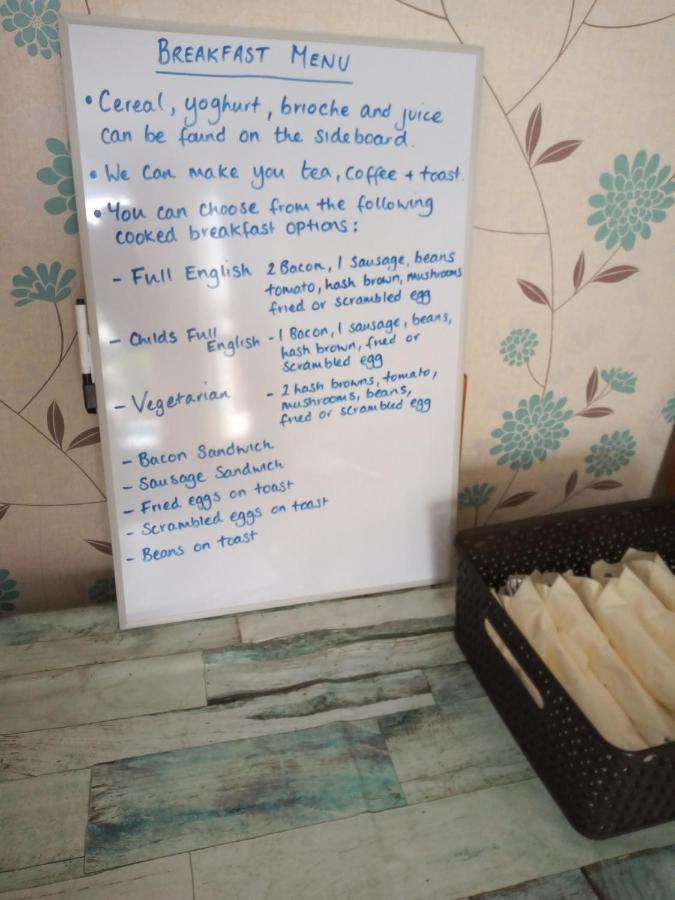 BREAKFAST MENU
• Cereal, yoghurt, brioche and juice
can be found on the sideboard.
• We can make you tea, coffee + toast.
• You can choose from the following
cooked breakfast options:
- Full English 2 Bacon, 1 sausage, beans
tomato, hash brown, mushrooms
fried or scrambled egg
- Childs Full
English - 1 Bacon, 1 sausage, beans,
hash brown, fried or
scrambled egg
- Vegetarian - 2 hash browns, tomato,
mushrooms, beans,
fried or scrambled egg
- Bacon Sandwich
- Sausage Sandwich
- Fried eggs on toast
- Scrambled eggs on toast
- Beans on toast